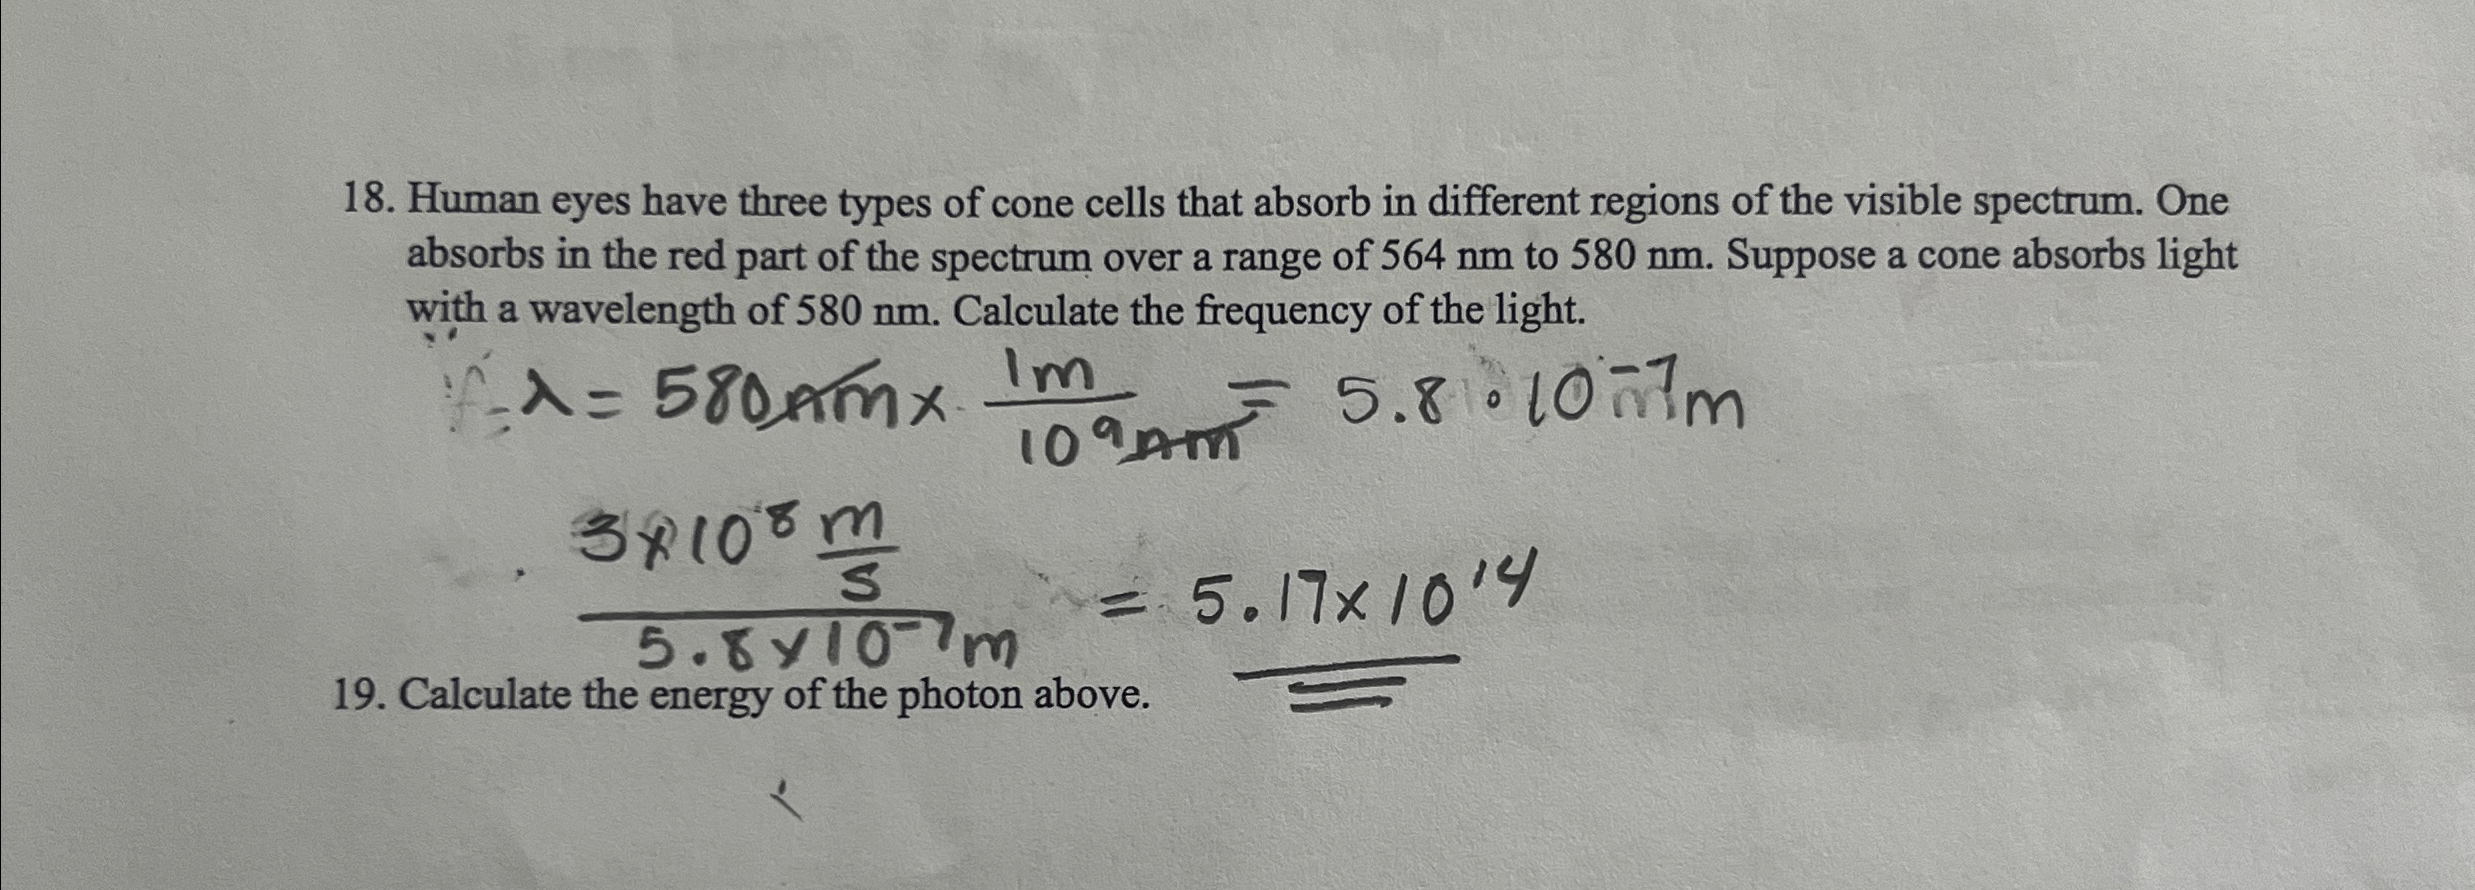 18. Human eyes have three types of cone cells that absorb in different regions of the visible spectrum. One
absorbs in the red part of the spectrum over a range of 564 nm to 580 nm. Suppose a cone absorbs light
with a wavelength of 580 nm. Calculate the frequency of the light.
λ = 580 nm x 1m / 10⁹ nm = 5.8 · 10⁻⁷ m
3x10⁸ m/s / 5.8x10⁻⁷ m = 5.17x10¹⁴
19. Calculate the energy of the photon above.